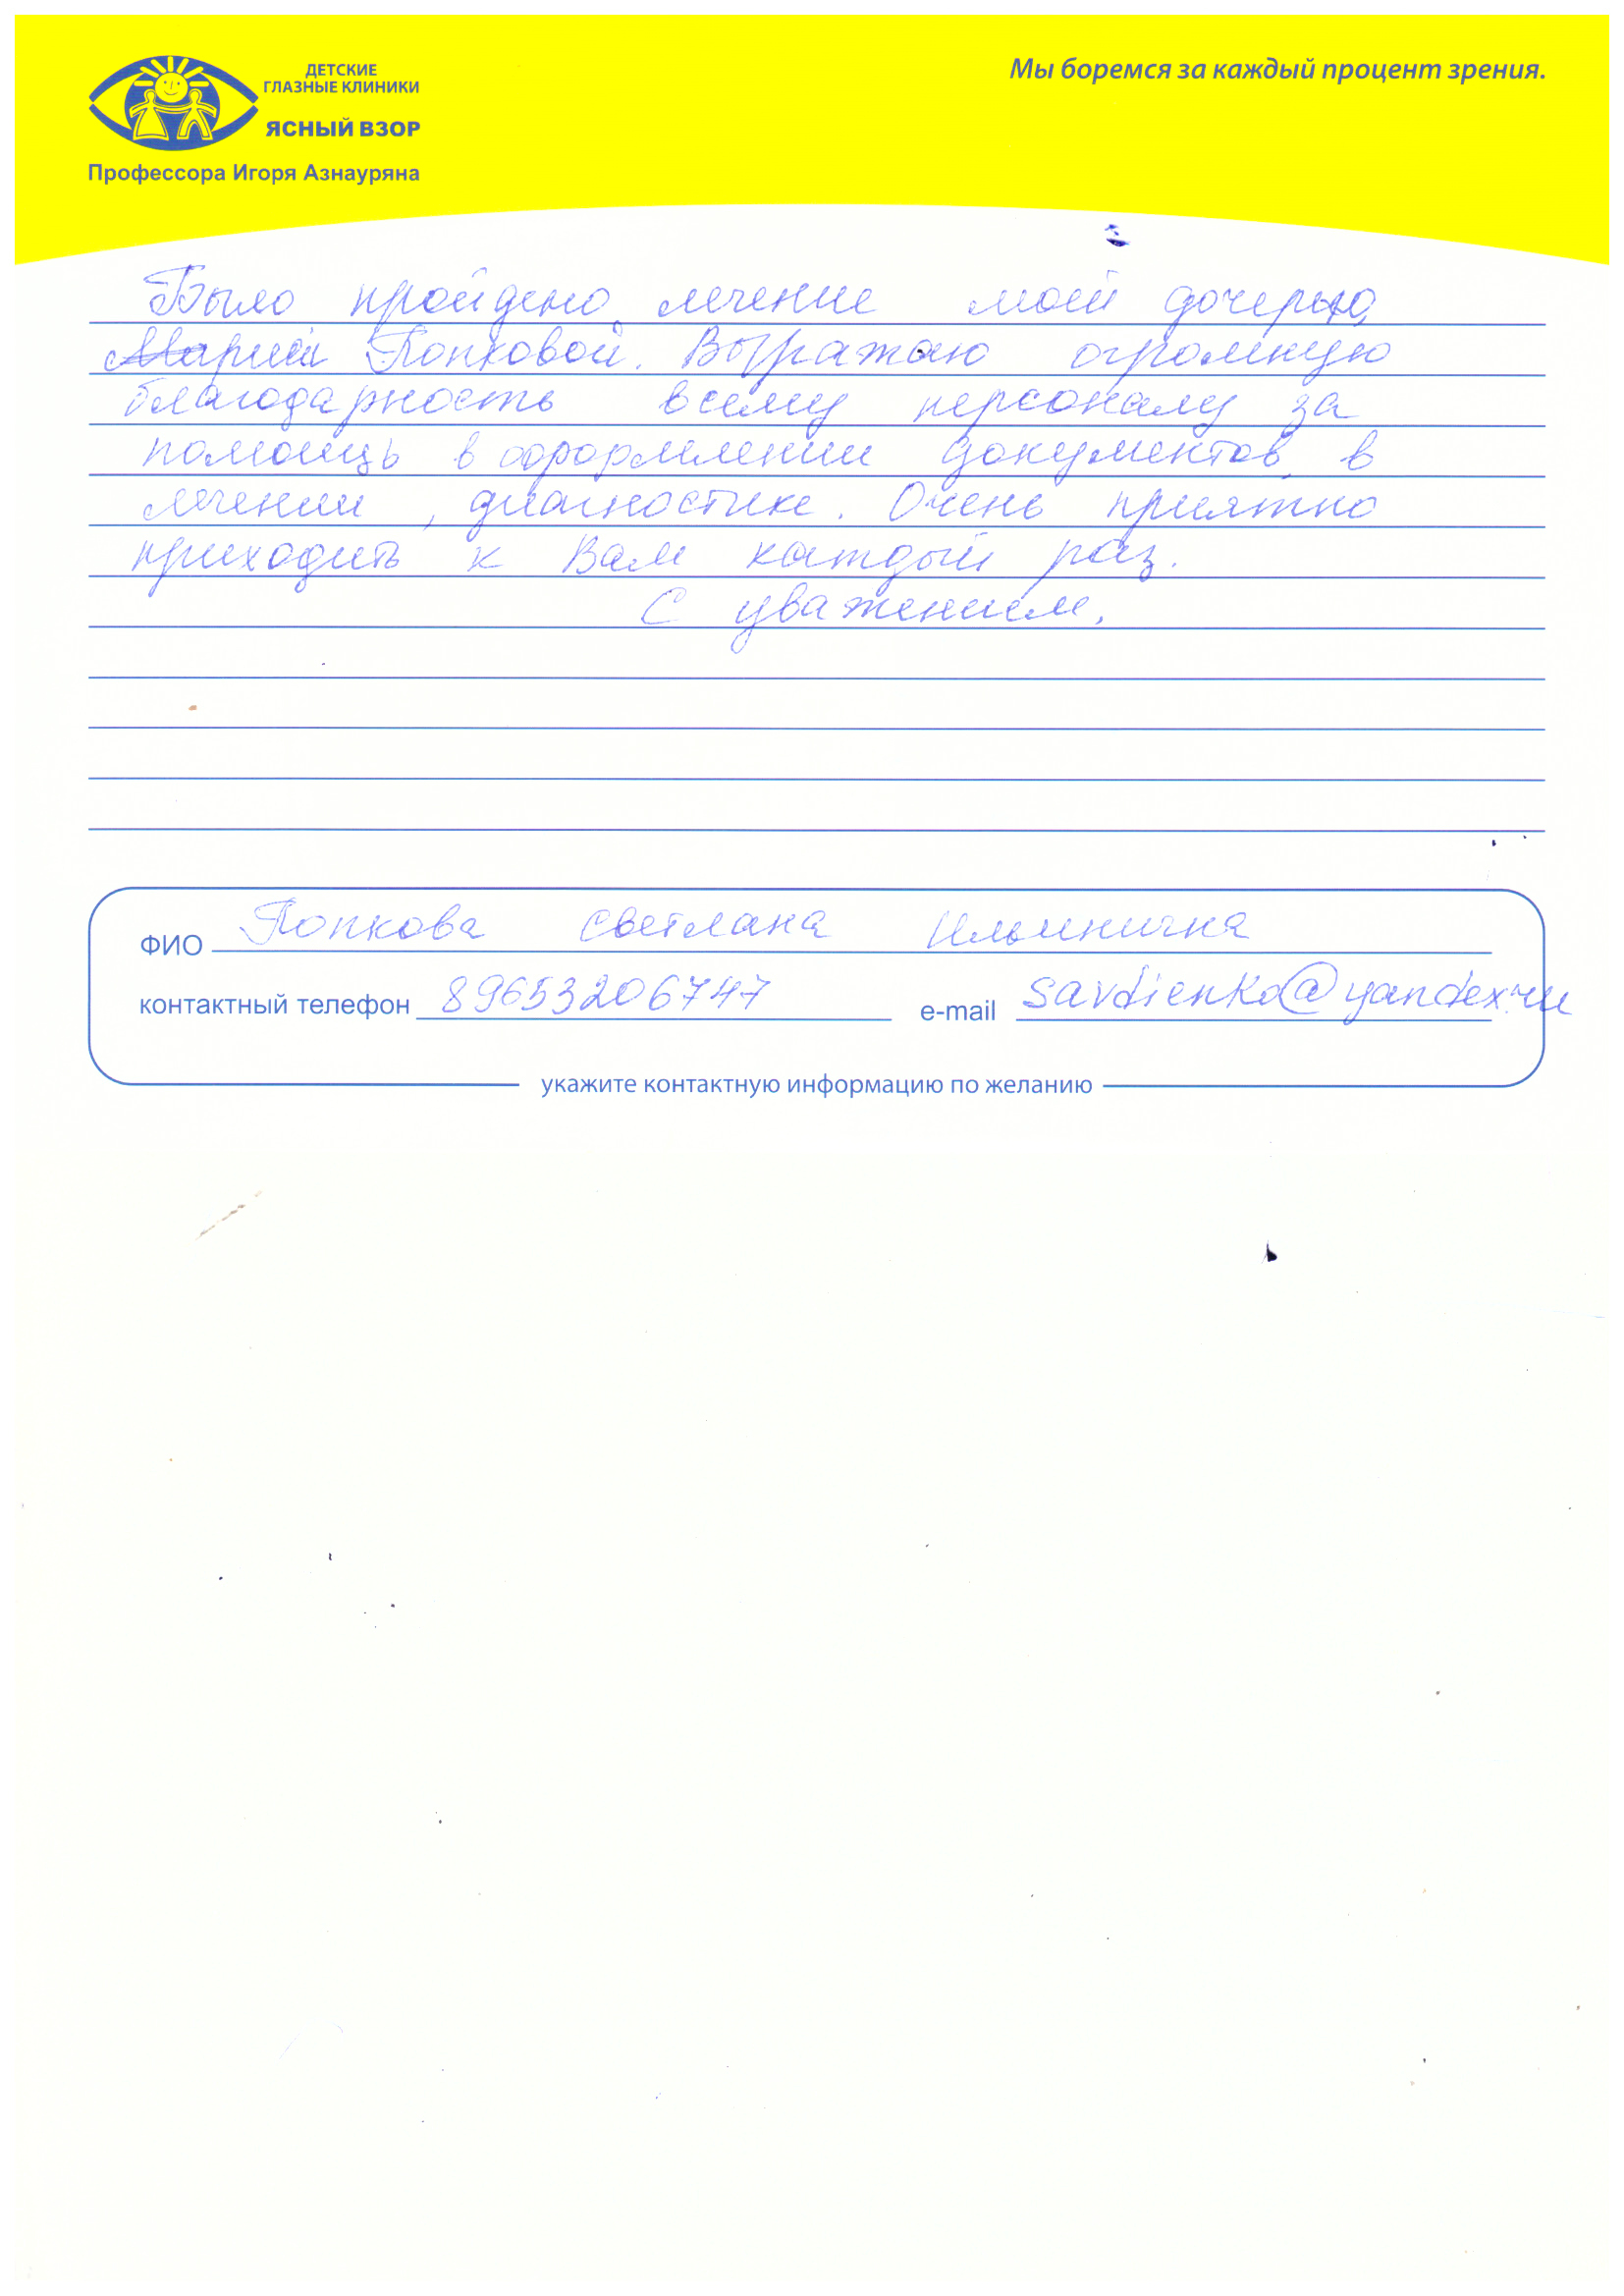 ДЕТСКИЕ
ГЛАЗНЫЕ КЛИНИКИ
ЯСНЫЙ ВЗОР
Профессора Игоря Азнауряна
Мы боремся за каждый процент зрения.
Было пройдено лечение моей дочерью,
Марией Попковой. Выражаю огромную
благодарность всему персоналу за
помощь в оформлении документов, в
лечении, диагностике. Очень приятно
приходить к Вам каждый раз.
С уважением,
ФИО Попкова Светлана Ильинична
контактный телефон 89653206747 e-mail savdienko@yandex.ru
укажите контактную информацию по желанию